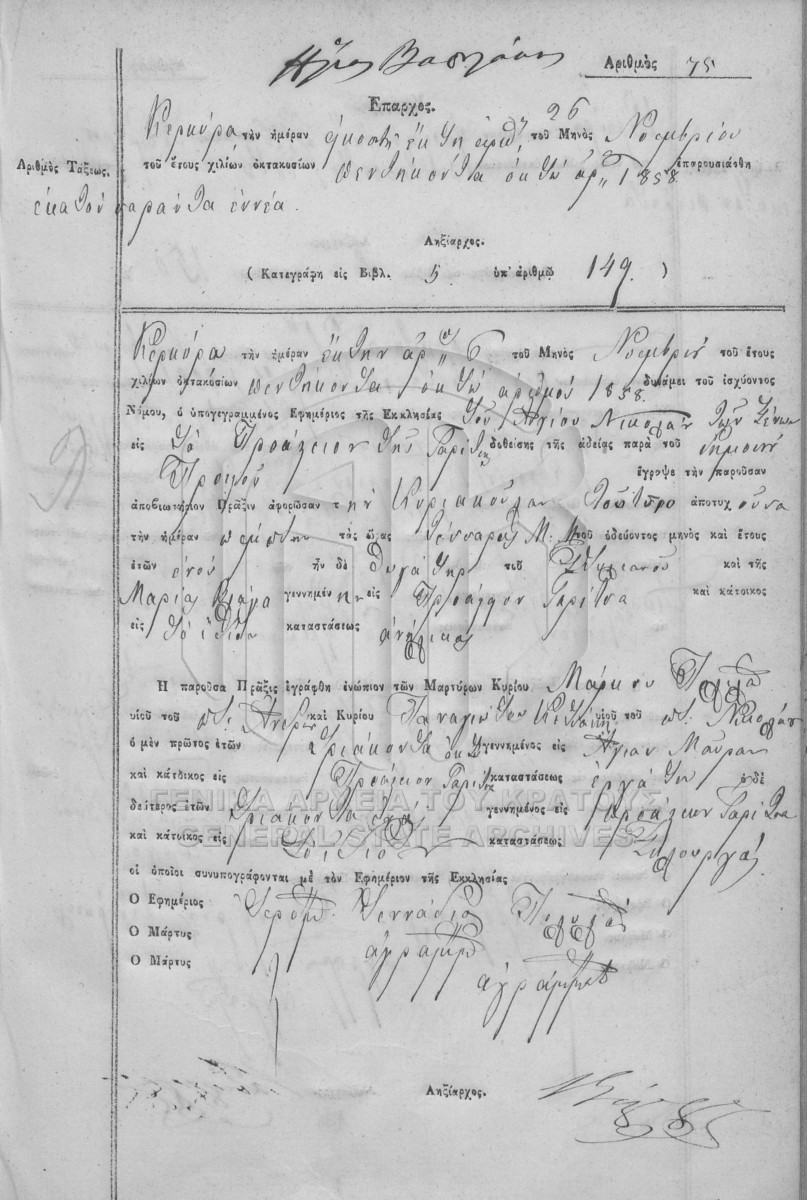 Αριθμὸς 75
Επαρχος.
Κερκύρα τὴν ἡμέραν εἰκοστὴ ἕκτη ἀριθ. 26 τοῦ Μηνὸς Νοεμβρίου
Αριθμὸς Τάξεως. τοῦ ἔτους χιλίων ὀκτακοσίων πεντήκοντα ὀκτώ ἀρ. 1858 ἐπαρουσιάσθη
ἑκατὸν σαράντα ἐννέα.
Ληξίαρχος.
( Κατεγράφη εἰς Βιβλ. 5 ὑπ' ἀριθμῶ 149. )
Κερκύρα τὴν ἡμέραν ἕκτην ἀρ. 6 τοῦ Μηνὸς Νοεμβρίου τοῦ ἔτους
χιλίων ὀκτακόσίων πεντήκοντα ὀκτώ ἀριθμοῦ 1858. δυνάμει τοῦ ἰσχύοντος
Νόμου, ὁ ὑπογεγραμμένος Εφημέριος τῆς Εκκλησίας τοῦ Ἁγίου Νικολάου τῶν Ξένων
εἰς τὸ Προάστειον τῆς Γαρίτσας δοθείσης τῆς ἀδείας παρὰ τοῦ
ἔγραψε τὴν παροῦσαν
ἀποβιωτήριον Πρᾶξιν ἀφορῶσαν τὴν Κυριακούλαν ἀποτυχοῦσα
τὴν ἡμέραν πέμπτην τὰς ὥρας τέσσαρας Μ. Μ. τοῦ ὁδεύοντος μηνὸς καὶ ἔτους
ἐτῶν ἑνοῦ ἦν δὲ θυγάτηρ τοῦ καὶ τῆς
Μαρίας γεννημένην εἰς Προάστιον Γαρίτσα καὶ κάτοικος
εἰς τὸ ἴδιον καταστάσεως ἀνήλικος
Ἡ παροῦσα Πρᾶξις ἐγράφθη ἐνώπιον τῶν Μαρτύρων Κυρίου Μάρκου
υἱοῦ τοῦ π. Ἀνδρέα καὶ Κυρίου Παναγιώτου υἱοῦ τοῦ π. Νικολάου
ὁ μὲν πρῶτος ἐτῶν τριάκοντα ὀκτώ γεννημένος εἰς Ἁγίαν Μαύραν
καὶ κάτοικος εἰς Προάστιον Γαρίτσας καταστάσεως ἐργάτην ὁ δὲ
δεύτερος ἐτῶν τριάκοντα ἕνα γεννημένος εἰς Προάστειον Γαρίτσα
καὶ κάτοικος εἰς τὸ ἴδιον καταστάσεως ξυλουργός
οἱ ὁποῖοι συνυπογράφονται μὲ τὸν Εφημέριον τῆς Εκκλησίας
Ο Εφημέριος Ἱερομ. Γεννάδιος
Ο Μάρτυς ἀγράμματος
Ο Μάρτυς ἀγράμματος
Ληξίαρχος.
ΓΕΝΙΚΑ ΑΡΧΕΙΑ ΤΟΥ ΚΡΑΤΟΥΣ
GENERAL STATE ARCHIVES